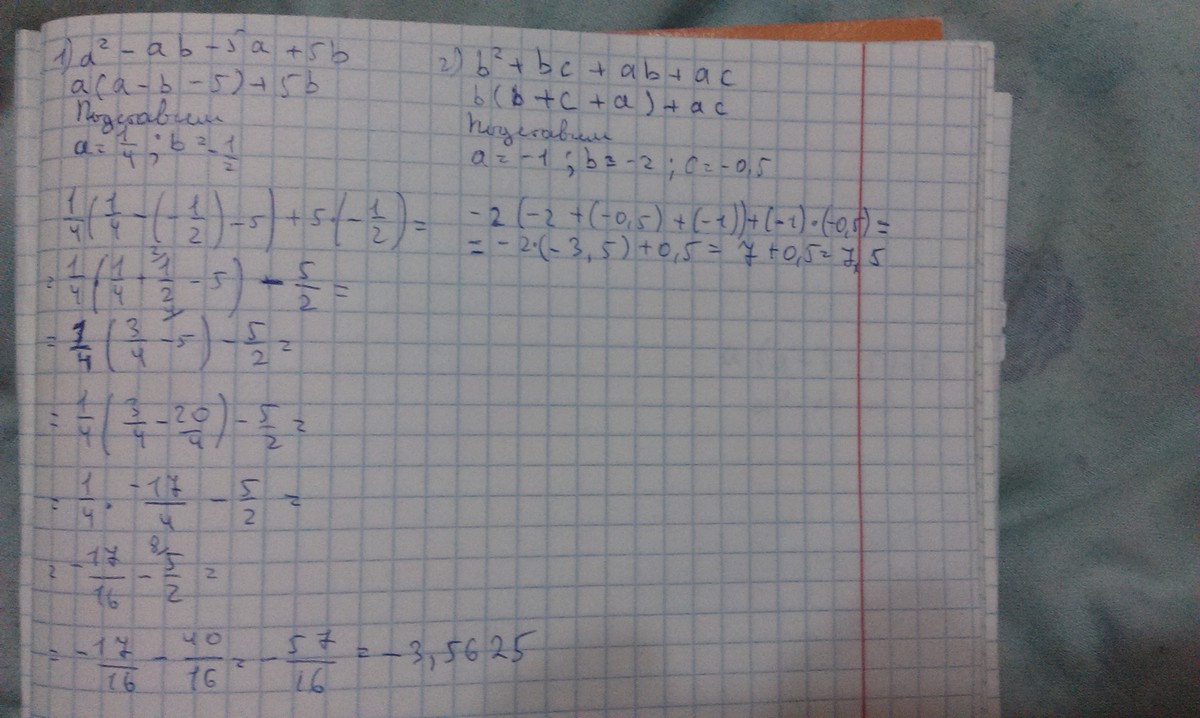 1) a² - ab - 5a + 5b
a(a - b - 5) + 5b
Подставим
a = 1/4 ; b = -1/2
1/4 (1/4 - (-1/2) - 5) + 5·(-1/2) =
= 1/4 (1/4 + 1/2 - 5) - 5/2 =
= 1/4 (3/4 - 5) - 5/2 =
= 1/4 (3/4 - 20/4) - 5/2 =
= 1/4 · -17/4 - 5/2 =
= -17/16 - 5/2 =
= -17/16 - 40/16 = -57/16 = -3,5625
2) b² + bc + ab + ac
b(b + c + a) + ac
Подставим
a = -1 ; b = -2 ; c = -0,5
-2 (-2 + (-0,5) + (-1)) + (-1)·(-0,5) =
= -2·(-3,5) + 0,5 = 7 + 0,5 = 7,5